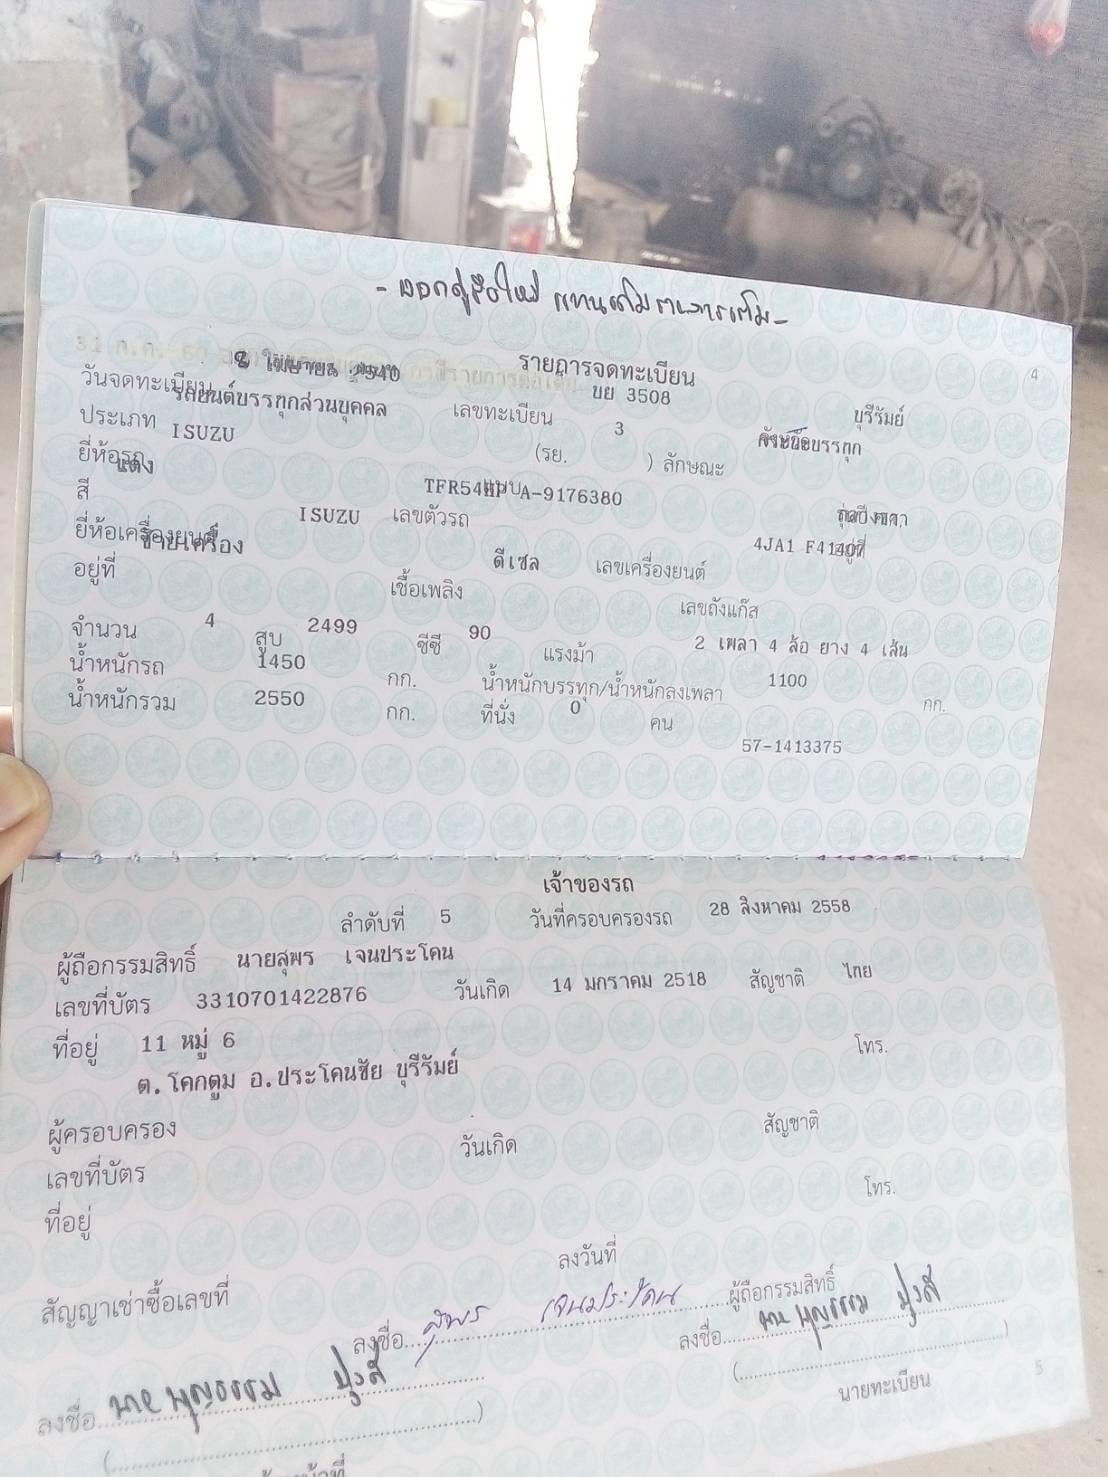 -ออกคู่มือใหม่ แทนเดิม
รายการจดทะเบียน
4
วันจดทะเบียน เมษายน 2540 เลขทะเบียน บย 3508 บุรีรัมย์
ประเภท รถยนต์บรรทุกส่วนบุคคล (รย. 3 ) ลักษณะ
ยี่ห้อรถ ISUZU
สี แดง เลขตัวรถ TFR54HP A-9176380
ยี่ห้อเครื่องยนต์ ISUZU เลขเครื่องยนต์ 4JA1 F41407
อยู่ที่ เชื้อเพลิง ดีเซล เลขถังแก๊ส
จำนวน 4 สูบ 2499 ซีซี 90 แรงม้า 2 เพลา 4 ล้อ ยาง 4 เส้น
น้ำหนักรถ 1450 กก. น้ำหนักบรรทุก/น้ำหนักลงเพลา 1100 กก.
น้ำหนักรวม 2550 กก. ที่นั่ง 0 คน
57-1413375
เจ้าของรถ
ลำดับที่ 5 วันที่ครอบครองรถ 28 สิงหาคม 2558
ผู้ถือกรรมสิทธิ์ นายสุพร เจนประโคน
เลขที่บัตร 3310701422876 วันเกิด 14 มกราคม 2518 สัญชาติ ไทย
ที่อยู่ 11 หมู่ 6 โทร.
ต.โคกตูม อ.ประโคนชัย บุรีรัมย์
ผู้ครอบครอง
เลขที่บัตร วันเกิด สัญชาติ
ที่อยู่ โทร.
สัญญาเช่าซื้อเลขที่ ลงวันที่
ลงชื่อ สุพร เจนประโคน ผู้ถือกรรมสิทธิ์
ลงชื่อ ลงชื่อ
นายทะเบียน
5